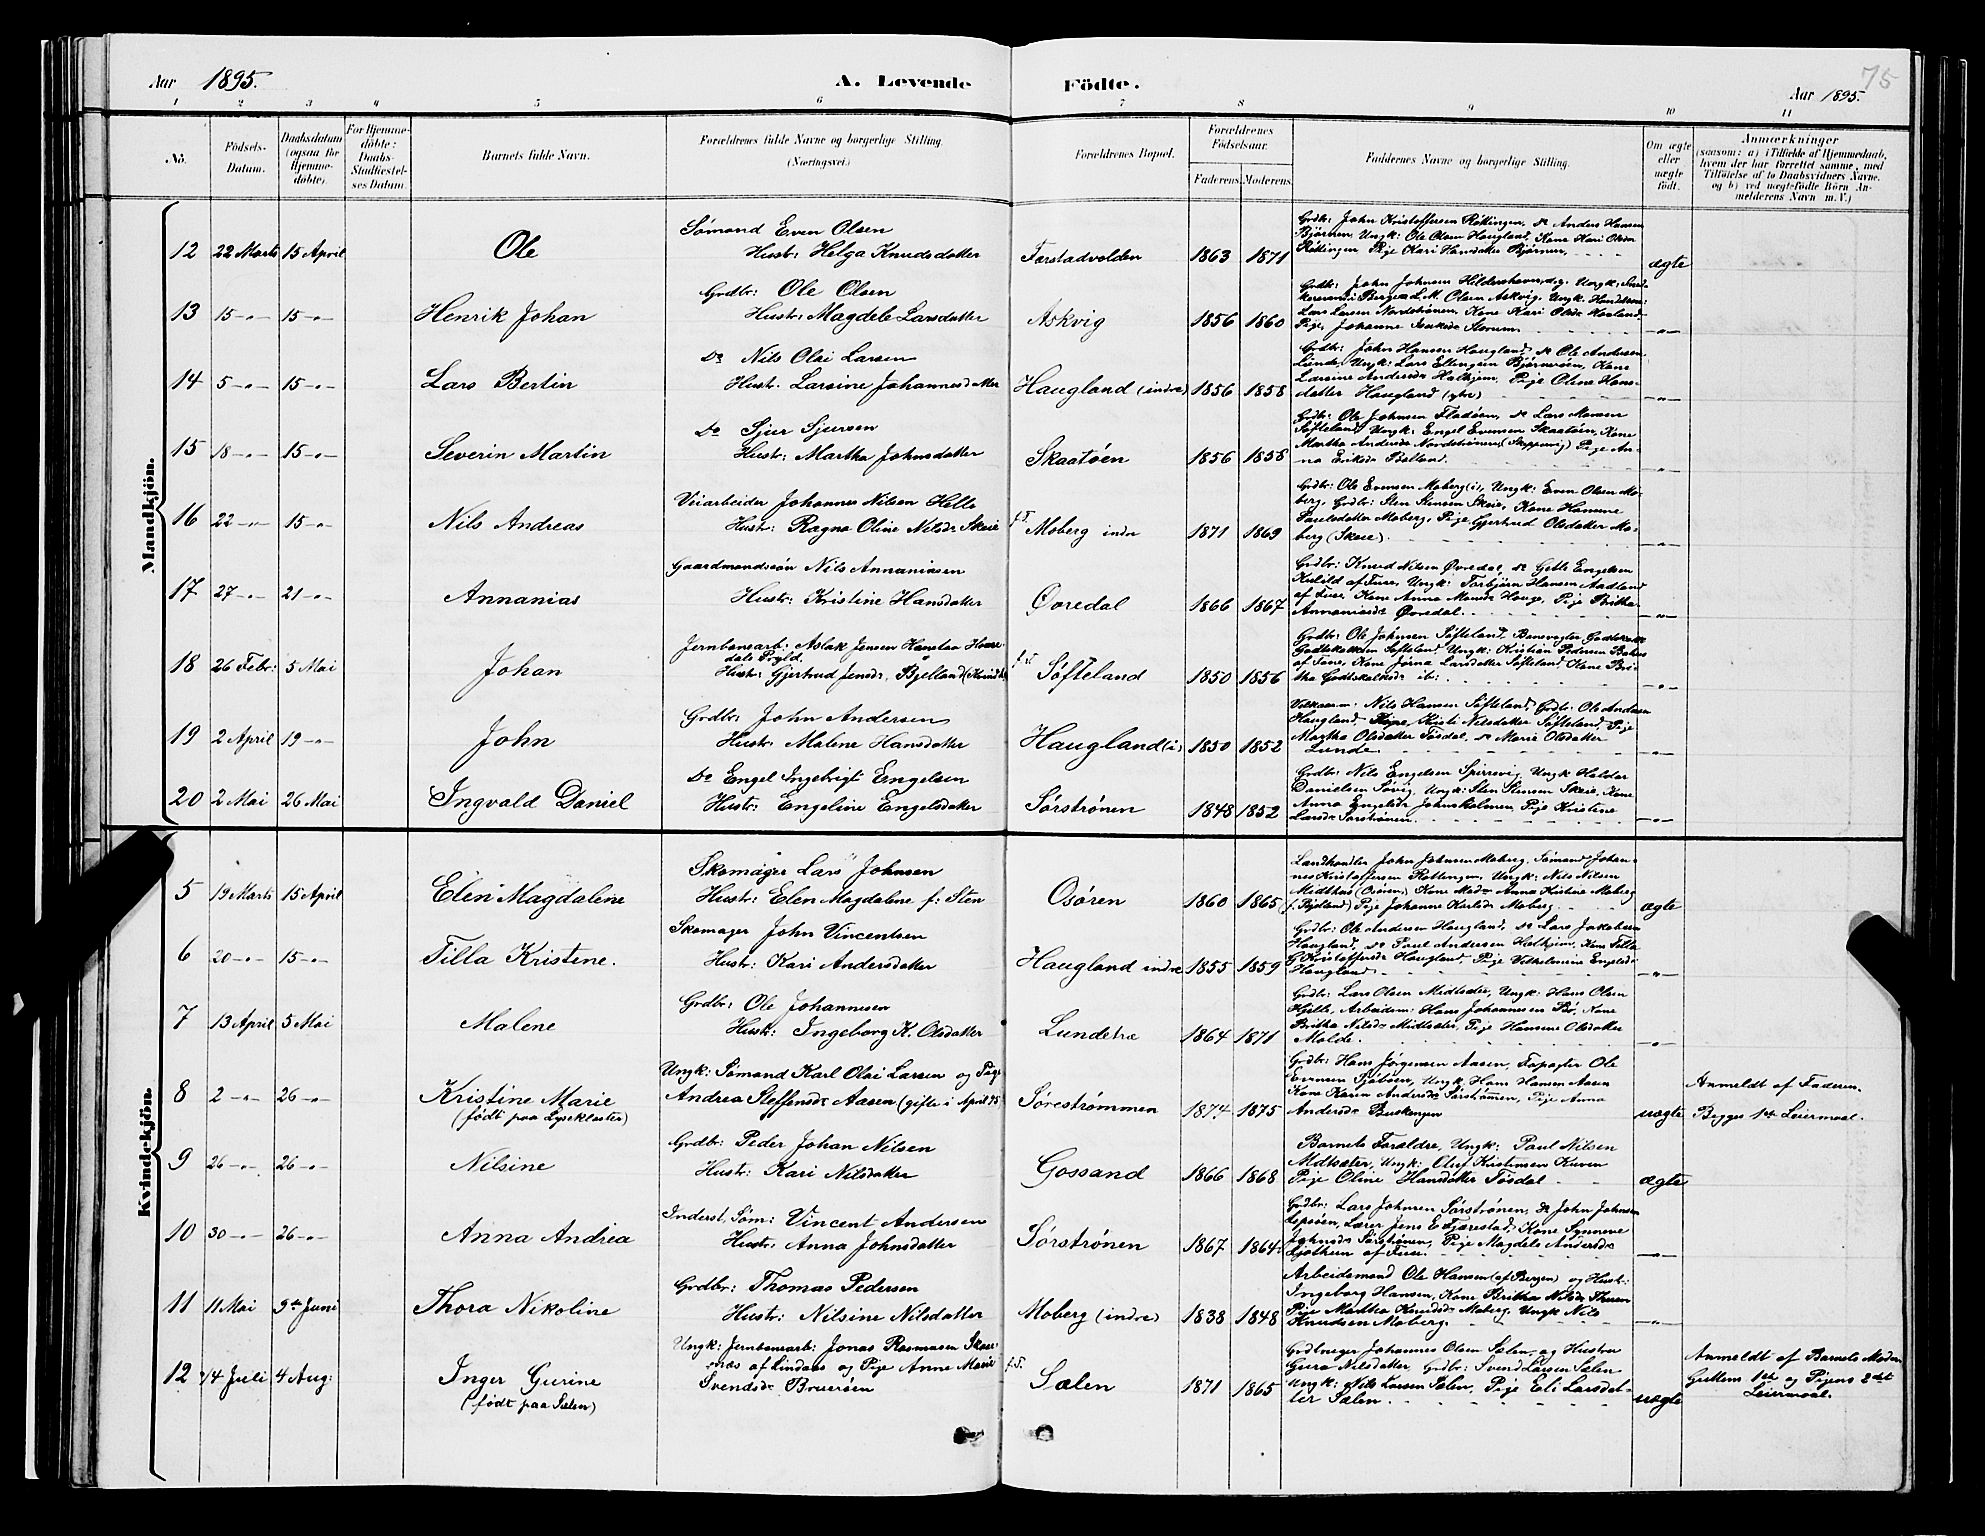 75
Aar 1895. A. Levende Födte. Aar 1895.
1 2 3 4 5 6 7 8 9 10 11
No. Födsels-Datum. Daabsdatum (ogsaa for Hjemmedöbte). For Hjemmedöbte: Daabs-Stadfæstelses Datum. Barnets fulde Navn. Forældrenes fulde Navne og borgerlige Stilling. (Næringsvei.) Forældrenes Bopæl. Forældrenes Födselsaar. Faderens. Moderens. Faddernes Navne og borgerlige Stilling. Om ægte eller uægte födt. Anmærkninger (saasom: a) i Tilfælde af Hjemmedaab, hvem der har forrettet samme, med Tilföielse af to Daabsvidners Navne, og b) ved uægtefödte Börn Anmelderens Navn m. V.)
Mandkjön.
12 22 Marts 15 April Ole Sømand Even Olsen
Hustr: Helga Knudsdatter Førstadvolden 1863 1871 ægte
Grdb: John Kristoffersen Røttingen, do Anders Hansen
Bjørnen, Ungk: Ole Olsen Haugland, Kone Kari Olsdr
Røttingen Pige Kari Hansdatter Bjørnen,
13 15 -"- 15 -"- Henrik Johan Grdbr: Ole Olsen
Hustr: Magdele Larsdatter Askvig 1856 1860 -"-
Lars Larsen Nordstrønen, Kone Kari Olsdr Havland
14 5 -"- 15 -"- Lars Bertin Do Nils Olai Larsen
Hustr. Larsine Johannesdatter Haugland (indre) 1856 1858 -"-
Grdbr: John Hansen Haugland, do Ole Andersen
Lunde, Ungk: Lars Ellingsen Bjørnøen, Kone
Larsine Andersdr Halhjem, Pige Oline Hans-
datter Haugland (ytre)
15 18 -"- 15 -"- Severin Martin Do Sjur Sjursen
Hustr: Martha Johnsdatter Skaatøen 1856 1858 -"-
Grdb: Ole Johnsen Fladøen, do Lars Monsen
Søfteland, Ungk: Engel Evensen Skaatøen, Kone
na Eriksdr Bolland.
16 22 -"- 15 -"- Nils Andreas Veiarbeider Johannes Nilsen Helle
Hustr: Ragna Oline Nilsdr Skeie f.T. Moberg indre 1871 1869 -"-
Grdbr: Ole Evensen Moberg (i), Ungk: Even Olsen Mo-
berg, Grdbr: Sten Stensen Skeie, Kone Hansine
Paulsdatter Moberg, Pige Gjertrud Olsdatter Mo-
berg (Skeie)
17 27 -"- 21 -"- Annanias Gaardmandssøn Nils Annaniasen
Hustr: Kristine Hansdatter Øvredal 1866 1867 -"-
Grdbr: Knud Nilsen Øvredal, do Gitle Engelsen
Kulild af Fuse, Ungk: Torbjørn Hansen Aadland
af Fuse, Kone Anna Monsdr Hauge, Pige Britha
Annaniasdr Øvredal.
18 26 Febr: 5 Mai Johan Jernbanearb: Aslak Jensen
Hustr: Gjertrud Jensdr, Bjelland f.T. Søfteland 1850 1856 -"-
Grdbr: Ole Johnsen Søfteland, Banevogter Godtskalk
Godtskalksen Søfteland Ungk: Kristian Pedersen
af Fuse, Kone Jorina Larsdatter Søfteland, Kone Bri-
tha Godtskalksdr ib:
19 2 April 19 -"- John Grdbr: John Andersen
Hustr: Malene Hansdatter Haugland (i) 1850 1852 -"-
Nils Hansen Søfteland, Grdbr: Ole Andersen
Haugland, Kristi Nilsdatter Søfteland, Pige
Martha Olsdatter Tøsdal, do Marie Olsdatter
Lunde.
20 2 Mai 26 Mai Ingvald Daniel Do Engel Ingebrigt Engelsen
Hustr: Engeline Engelsdatter Sørstrønen 1848 1852 -"-
Grdbr: Nils Engelsen Spirevig, Ungk Halder
Danielsen Søvig, Ungk: Sten Stensen Skeie, Kone
Anna Engelsdr Johnsholmen, Pige Kristine
Larsdr Sørstrønen.
Kvindekjön.
5 19 Marts 15 April Elen Magdalene Skomager Lars Johnsen
Hustr: Elen Magdalene f. Sten Osøren 1860 1865 ægte
Landhandler John Johnsen Moberg, Sømand Johan-
nes Kristoffersen Røttingen, Ungk: Nils Nilsen
Midthus (Osøren), Kone Madm Anna Kristine Moberg
(f. Bjelland) Pige Johanne Karlsdr Moberg.
6 20 -"- 15 -"- Tilla Kristene. Skomager John Vincentsen
Hustr: Kari Andersdatter Haugland indre 1855 1859 -"-
Grdbr: Ole Andersen Haugland, do Lars Jakobsen
Haugland, do Paul Andersen Halhjem, Kone Tilla
G. Kristoffersdr Haugland, Pige Vilhelmine Engelsdr
Haugland
7 13 April 5 Mai Malene Grdbr: Ole Johannesen
Hustr: Ingeborg K. Olsdatter Lundetræ 1864 1871 -"-
Grdbr: Lars Olsen Midtsæter, Ungk: Hans Olsen
Hjelle, Arbeidsm: Hans Johannesen Bø, Kone
Britha Nilsdr Midtsæter, Pige Hansine Olsdatter
Molde.
8 2 -"- 26 -"- Kristine Marie Ungk: Sømand Karl Olai Larsen og Pige
(födt paa Lysekloster) Andrea Steffensdr Aasen (gifte i April 95) Sørestrømmen 1874 1875 uægte
Grdbr: Hans Jørgensen Aasen, Ole
Evensen Sjøbøen, Ungk: Hans Hansen Aasen
Kone Karen Andersdr Sørstrønen, Pige Anna
Andersdr Buskongen
Anmeldt af Faderen.
Begges 1ste Leiermaal.
9 26 -"- 26 -"- Nilsine Grdbr: Peder Johan Nilsen
Hustr: Kari Nilsdatter Gossand 1866 1868 ægte
Barnets Forældre, Ungk: Paul Nilsen
Midtsæter, Ungk: Oluf Kristensen Kuven
Pige Oline Hansdatter Tøsdal
10 30 -"- 26 -"- Anna Andrea Inderst, Søm: Vincent Andersen
Hustr: Anna Johnsdatter Sørstrønen 1867 1864 -"-
Grdbr: Lars Johnsen Sørstrønen, do John Johnsen
Lepsøen, Lærer Jens E Fjærestad, Kone Synneve
Johnsdr Sørstrønen, Pige Magdele Andersdr
af Fuse.
11 11 Mai 9de Juni Thora Nikoline Grdbr: Thomas Pedersen
Hustr: Nilsine Nilsdatter Moberg (indre) 1838 1848 -"-
Arbeidsmand Ole Hansen (af Bergen) og Hustr:
Ingeborg Hansen, Kone Britha Nilsdr Thuen
Pige Martha Knudsdr Moberg, Ungk Nils
Knudsen Moberg.
12 14 Juli 4 Aug: Inger Gurine Ungk: Jernbanearb: Jonas Rasmusen Skaar-
(födt paa Sælen) næs af Lindaas og Pige Anne Marie
Svendsdr Bruerøen f.T. Sælen 1871 1865 uægte
Grdbruger Johannes Olsen Sælen og Hustru
Guro Nilsdatter, Grdbr: Svend Larsen Sælen
Ungk: Nils Larsen Sælen, Pige Eli Larsdat-
ter Sælen.
Anmeldt af Barnets Moder
Guttens 1ste og Pigens 2det
Leiermaal.